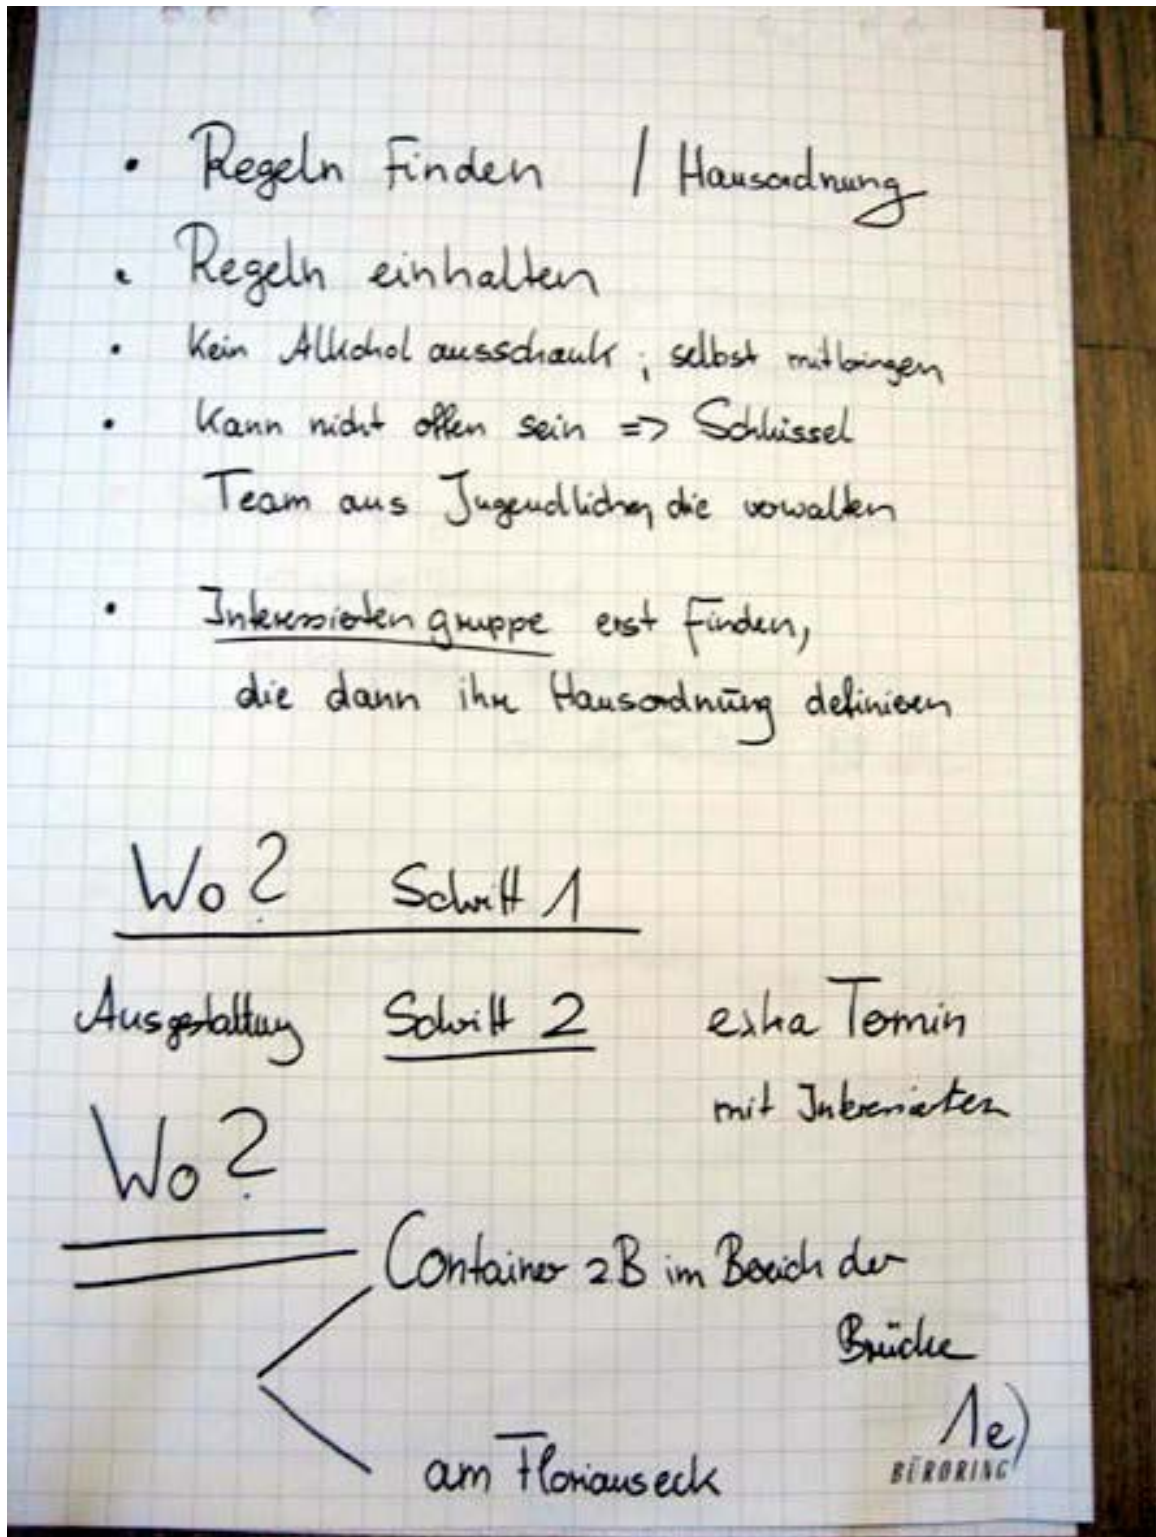 • Regeln Finden / Hausordnung
• Regeln einhalten
• Kein Alkohol ausschank ; selbst mitbringen
• Kann nicht offen sein => Schlüssel
Team aus Jugendlichen, die verwalten
• Interessierten gruppe erst finden,
die dann ihre Hausordnung definieren
Wo? Schritt 1
Ausgestaltung Schritt 2 extra Termin
mit Interessierten
Wo?
Container zB im Bereich der
Brücke
am Florianseck
1e)
BÜRORING